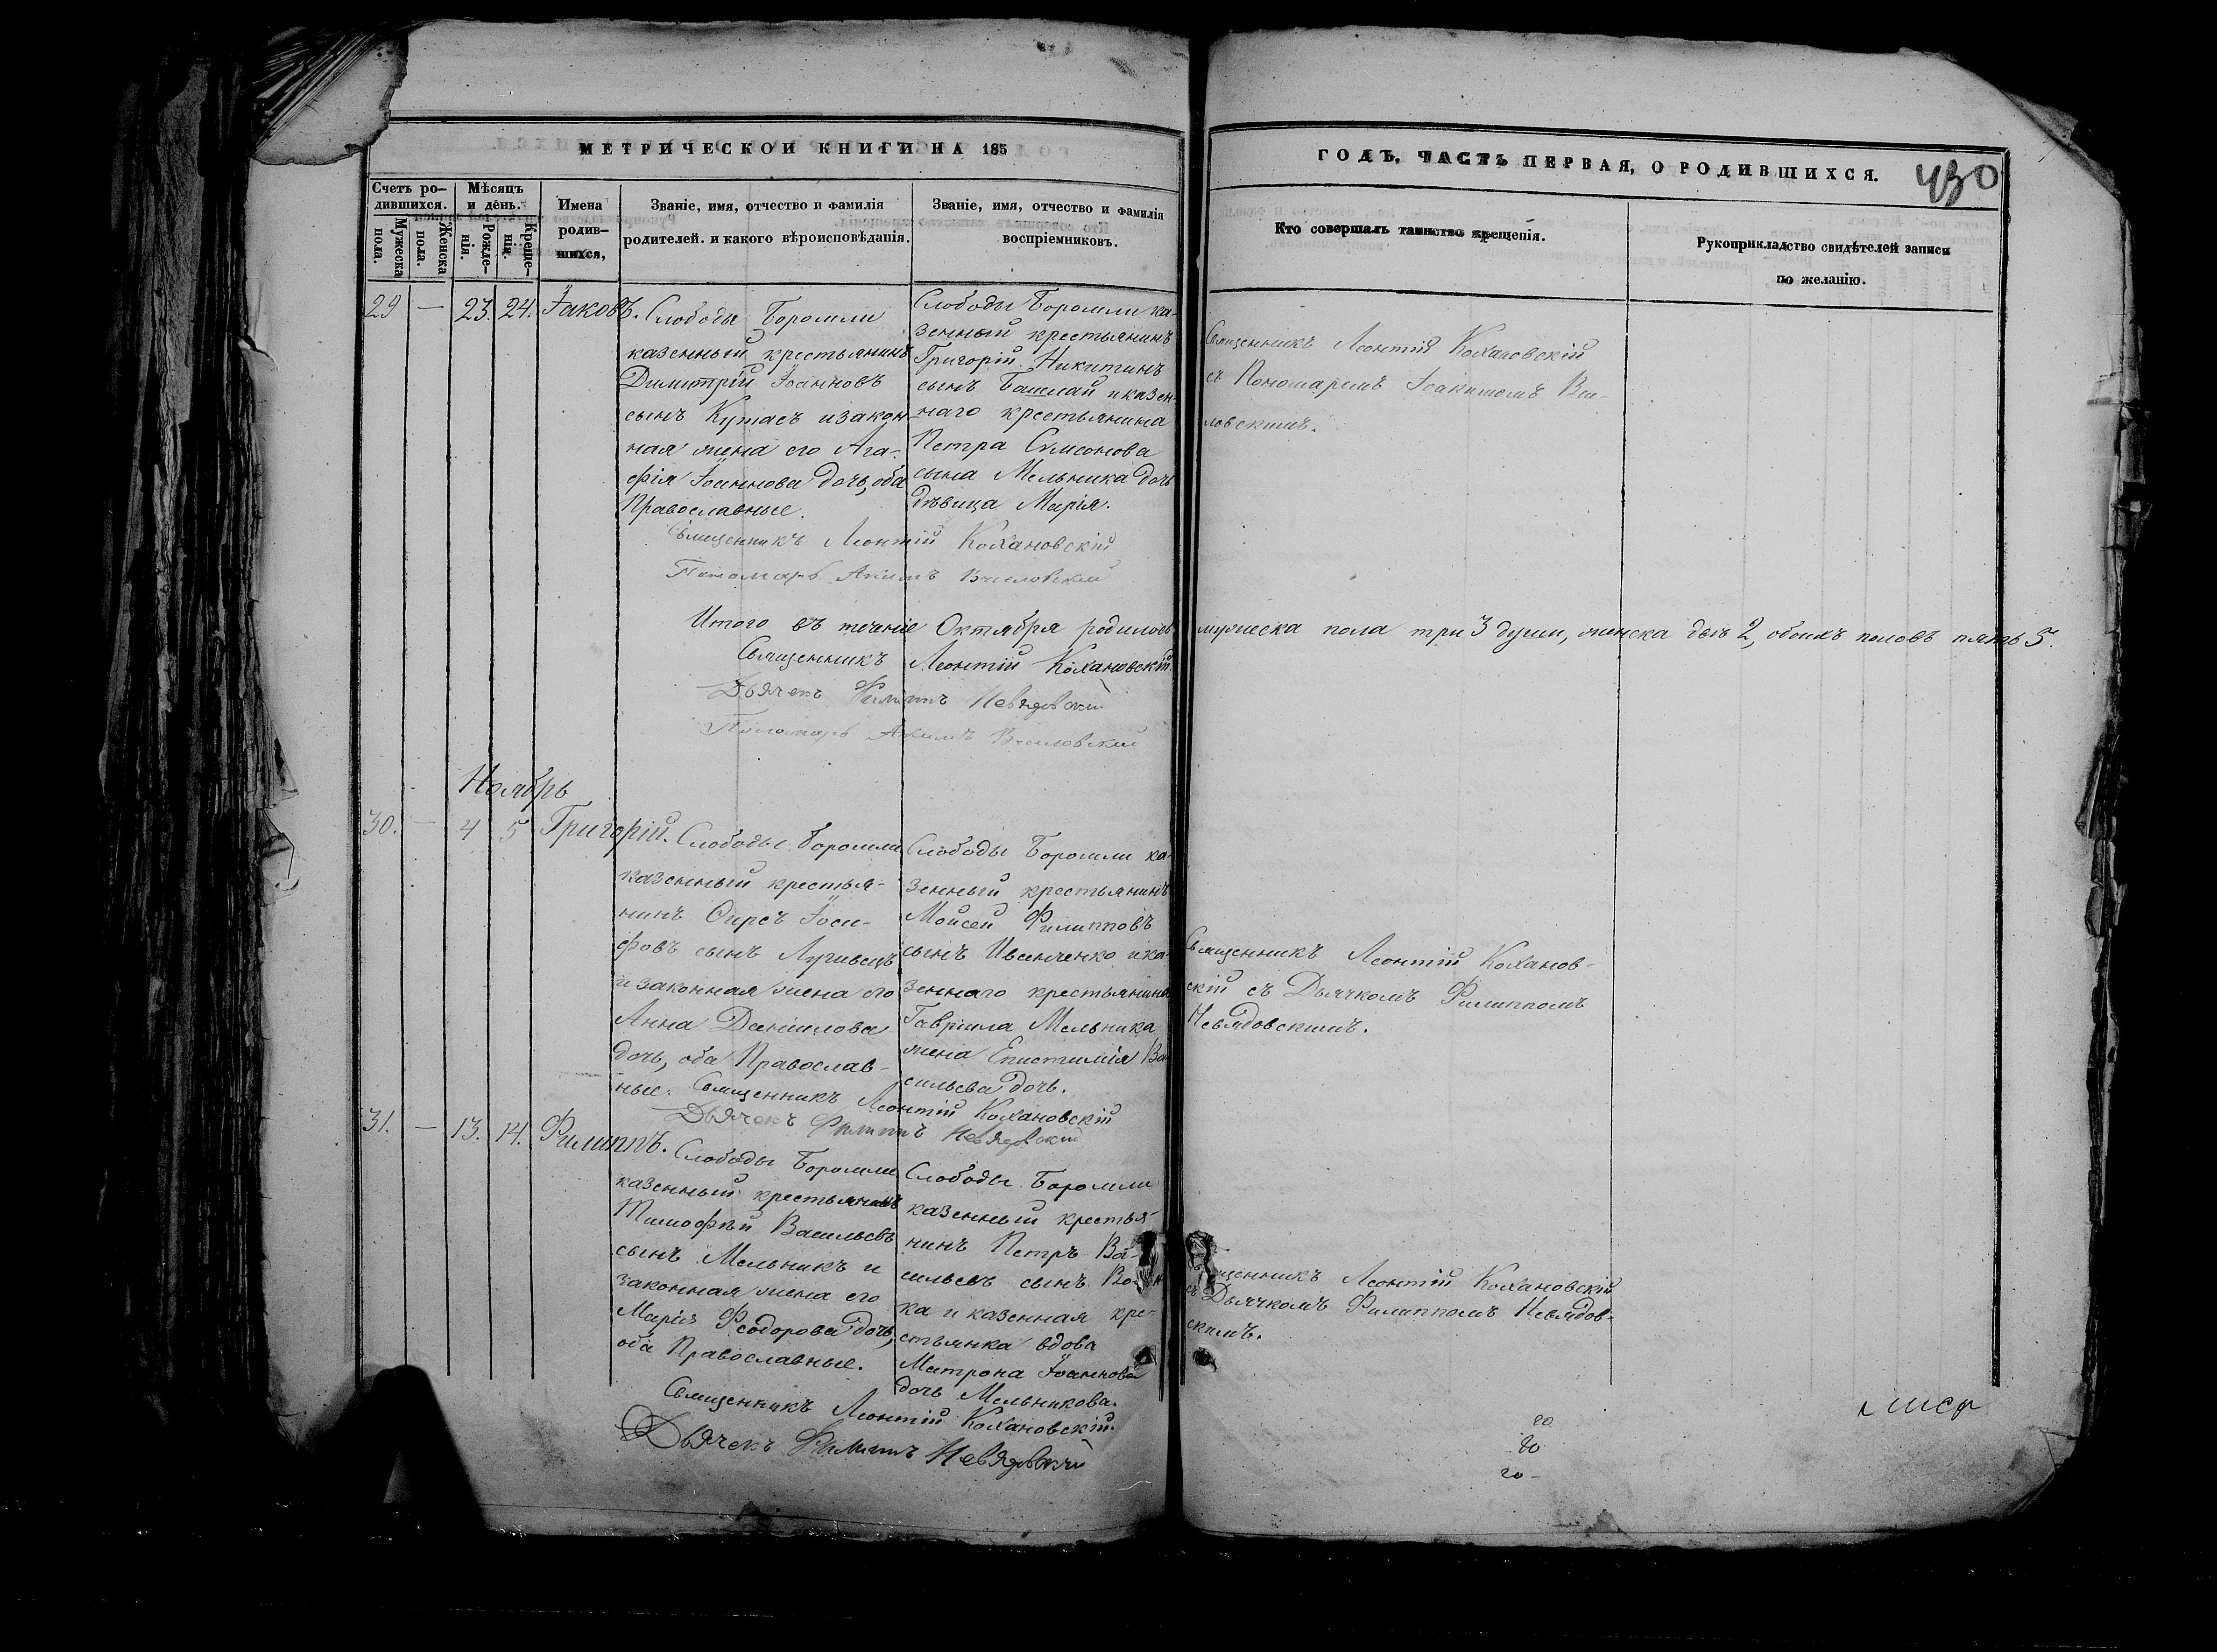 МЕТРИЧЕСКОЙ КНИГИ НА 185
ГОДЪ, ЧАСТЬ ПЕРВАЯ, О РОДИВШИХСЯ.
430
Счетъ ро-
дившихся.
Мужеска
пола.
Женска
пола.
Мѣсяцъ
и день.
Рожде-
нія.
Креще-
нія.
Имена
родив-
шихся,
Званіе, имя, отчество и фамилія
родителей. и какого вѣроисповѣданія.
Званіе, имя, отчество и фамилія
воспріемниковъ.
Кто совершалъ таинство крещенія.
Рукоприкладство свидѣтелей записи
по желанію.
29 — 23. 24. Іаковъ.
Слободы Боромли
казенный крестьянинъ
Димитрій Іоанновъ
сынъ Кутасъ и закон-
ная жена его Ага-
фія Іоаннова дочь, оба
Православные.
Слободы Боромли ка-
зенный крестьянинъ
Григорій Никитинъ
сынъ Башлай и казен-
наго крестьянина
Петра Сѵмеонова
сына Мельника дочь
дѣвица Марія.
Священникъ Леонтій Кохановскій
съ Пономаремъ Іоакимомъ
ловскимъ.
Священникъ Леонтій Кохановскій
Пономарь Акимъ
Итого въ теченіе Октября родилось мужеска пола три 3 души, женска двѣ 2, обоихъ половъ пять 5.
Священникъ Леонтій Кохановскій.
Дьячекъ Филиппъ Невядовскій
Пономарь Акимъ
Ноябрь
30. — 4 5 Григорій.
Слободы Боромли
казенный крестья-
нинъ Онисъ Іоси-
фовъ сынъ Лугивецъ
и законная жена его
Анна Даніилова
дочь, оба Православ-
ные.
Слободы Боромли ка-
зенный крестьянинъ
Моисей Филипповъ
сынъ Ивенченко и ка-
зеннаго крестьянина
Гавріила Мельника
жена Епистимія Ва-
сильева дочь.
Священникъ Леонтій Коханов-
скій съ Дьячкомъ Филиппомъ
Невядовскимъ.
Священникъ Леонтій Кохановскій
Дьячекъ Филиппъ Невядовскій
31. — 13. 14. Филиппъ.
Слободы Боромли
казенный крестьянинъ
Тимофѣй Васильевъ
сынъ Мельникъ и
законная жена его
Марія Феодорова дочь,
оба Православные.
Слободы Боромли
казенный крестья-
нинъ Петръ Ва-
сильевъ сынъ
ка и казенная кре-
стьянка вдова
Матрона Іоаннова
дочь Мельникова.
щенникъ Леонтій Кохановскій
съ Дьячкомъ Филиппомъ Невядов-
скимъ.
Священникъ Леонтій Кохановскій.
Дьячекъ Филиппъ Невядовскій